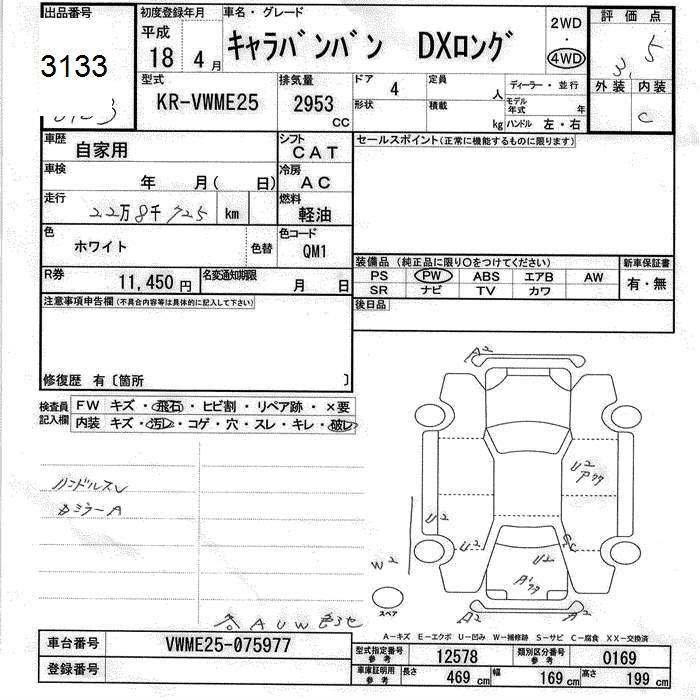 出品番号 初度登録年月 車名・グレード 2WD 評価点
3133 平成 18 4月 キャラバンバン DXロング 4WD 3.5
型式 排気量 ドア 4 定員 人 ディーラー・並行 外装 内装
KR-VWME25 2953 CC 形状 積載 kg モデル年式 年 ハンドル 左・右 C
車歴 自家用 シフト CAT セールスポイント(正常に機能するものに限ります)
車検 年 月( 日) 冷房 AC
走行 22万8千725 km 燃料 軽油
色 ホワイト 色替 色コード QM1
装備品(純正品に限り○をつけてください) 新車保証書
R券 11,450円 名変通知期限 月 日 PS PW ABS エアB AW 有・無
SR ナビ TV カワ
注意事項申告欄(不具合内容等は具体的に記入して下さい) 後日品
修復歴 有〔箇所 〕
検査員記入欄 FW キズ・飛石・ヒビ割・リペア跡・×要
内装 キズ・汚レ・コゲ・穴・スレ・キレ・破レ
A2
U2
ハンドルスレ
カミラーA
U2 U2 U2
W2
スペア
A2 A2
各AUW色々
A-キズ E-エクボ U-凹み W-補修跡 S-サビ C-腐食 XX-交換済
車台番号 VWME25-075977 型式指定番号 参考 12578 類別区分番号 参考 0169
登録番号 車庫証明用 参考 長さ 469 cm 幅 169 cm 高さ 199 cm